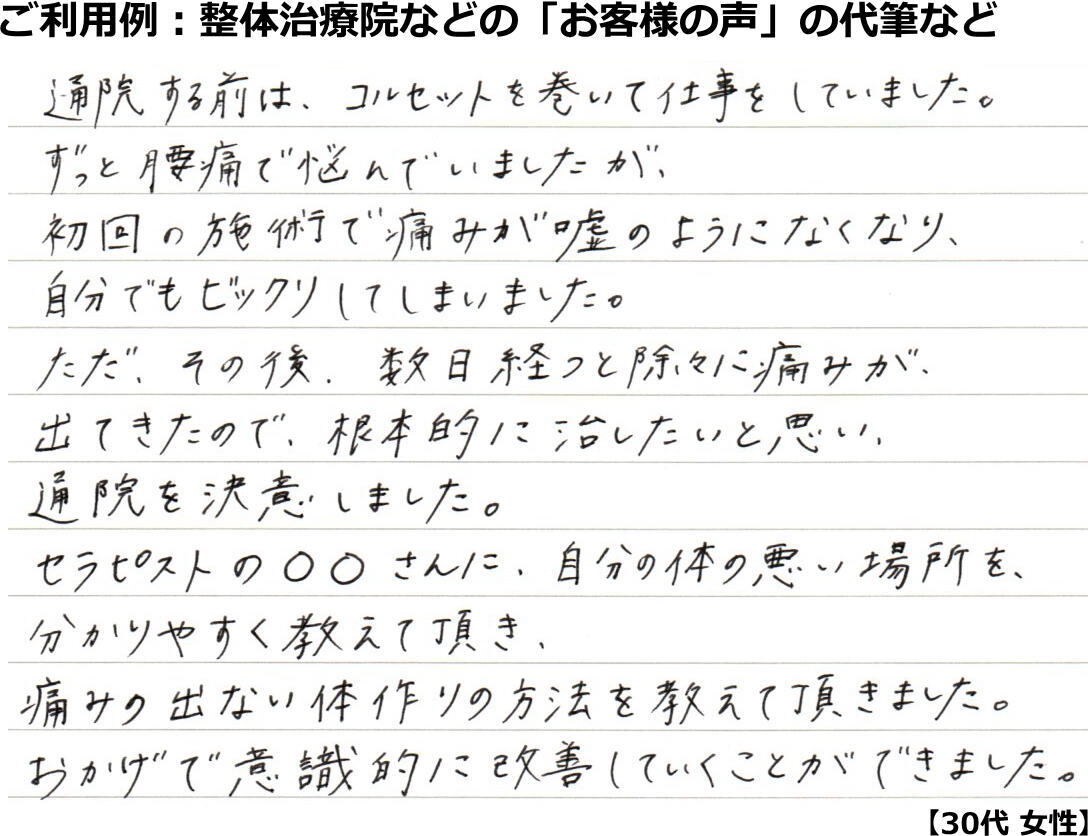 ご利用例：整体治療院などの「お客様の声」の代筆など
通院する前は、コルセットを巻いて仕事をしていました。
ずっと腰痛で悩んでいましたが、
初回の施術で痛みが嘘のようになくなり、
自分でもビックリしてしまいました。
ただ、その後、数日経つと除々に痛みが、
出てきたので、根本的に治したいと思い、
通院を決意しました。
セラピストの〇〇さんに、自分の体の悪い場所を、
分かりやすく教えて頂き、
痛みの出ない体作りの方法を教えて頂きました。
おかげで意識的に改善していくことができました。
【30代 女性】